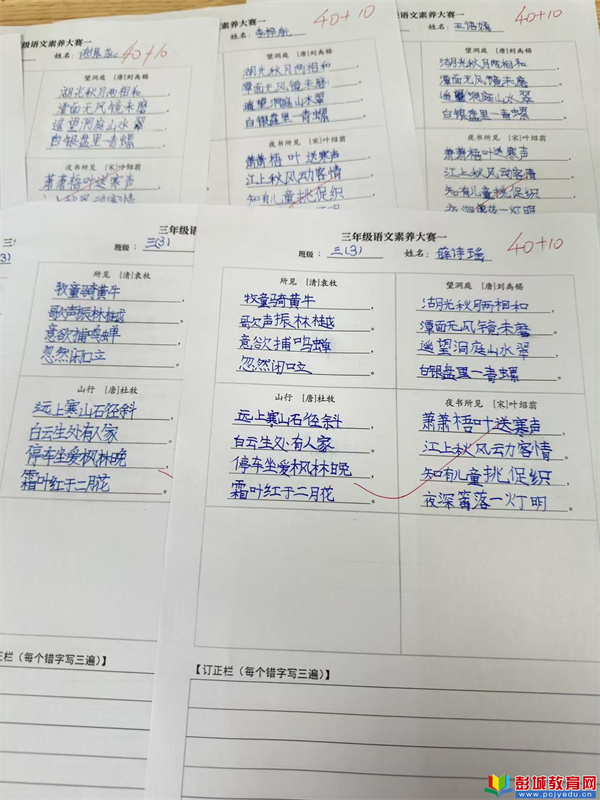 级语文素养大赛一
姓名：
40+10
望洞庭 [唐]刘禹锡
湖光秋月两相和
潭面无风镜未磨
遥望洞庭山水翠
白银盘里一青螺
夜书所见 [宋]叶绍翁
萧萧梧叶送寒声
江上秋风动客情
三年级语文素养大赛一
姓名：
40+10
望洞庭 [唐]刘禹锡
湖光秋月两相和
潭面无风镜未磨
遥望洞庭山水翠
白银盘里一青螺
夜书所见 [宋]叶绍翁
萧萧梧叶送寒声
江上秋风动客情
知有儿童挑促织
养大赛一
姓名：
40+10
望洞庭 [唐]刘禹锡
湖光秋月两相和
潭面无风镜未磨
遥望洞庭山水翠
白银盘里一青螺
夜书所见 [宋]叶绍翁
萧萧梧叶送寒声
江上秋风动客情
知有儿童挑促织
夜深篱落一灯明
三年级语
班级：三(3)
所见 [清]袁枚
牧童骑黄牛，
歌声振林樾。
意欲捕鸣蝉，
忽然闭口立。
山行 [唐]杜牧
远上寒山石径斜，
白云生处有人家。
停车坐爱枫林晚，
霜叶红于二月花。
正栏（每个错字写三遍）】
三年级语文素养大赛一
班级：三(3) 姓名：薛诗瑶
40+10
所见 [清]袁枚
牧童骑黄牛，
歌声振林樾。
意欲捕鸣蝉，
忽然闭口立。
望洞庭 [唐]刘禹锡
湖光秋月两相和，
潭面无风镜未磨。
遥望洞庭山水翠，
白银盘里一青螺。
山行 [唐]杜牧
远上寒山石径斜，
白云生处有人家。
停车坐爱枫林晚，
霜叶红于二月花。
夜书所见 [宋]叶绍翁
萧萧梧叶送寒声，
江上秋风动客情。
知有儿童挑促织，
夜深篱落一灯明。
【订正栏（每个错字写三遍）】
彭城教育网
www.pcjyedu.cn